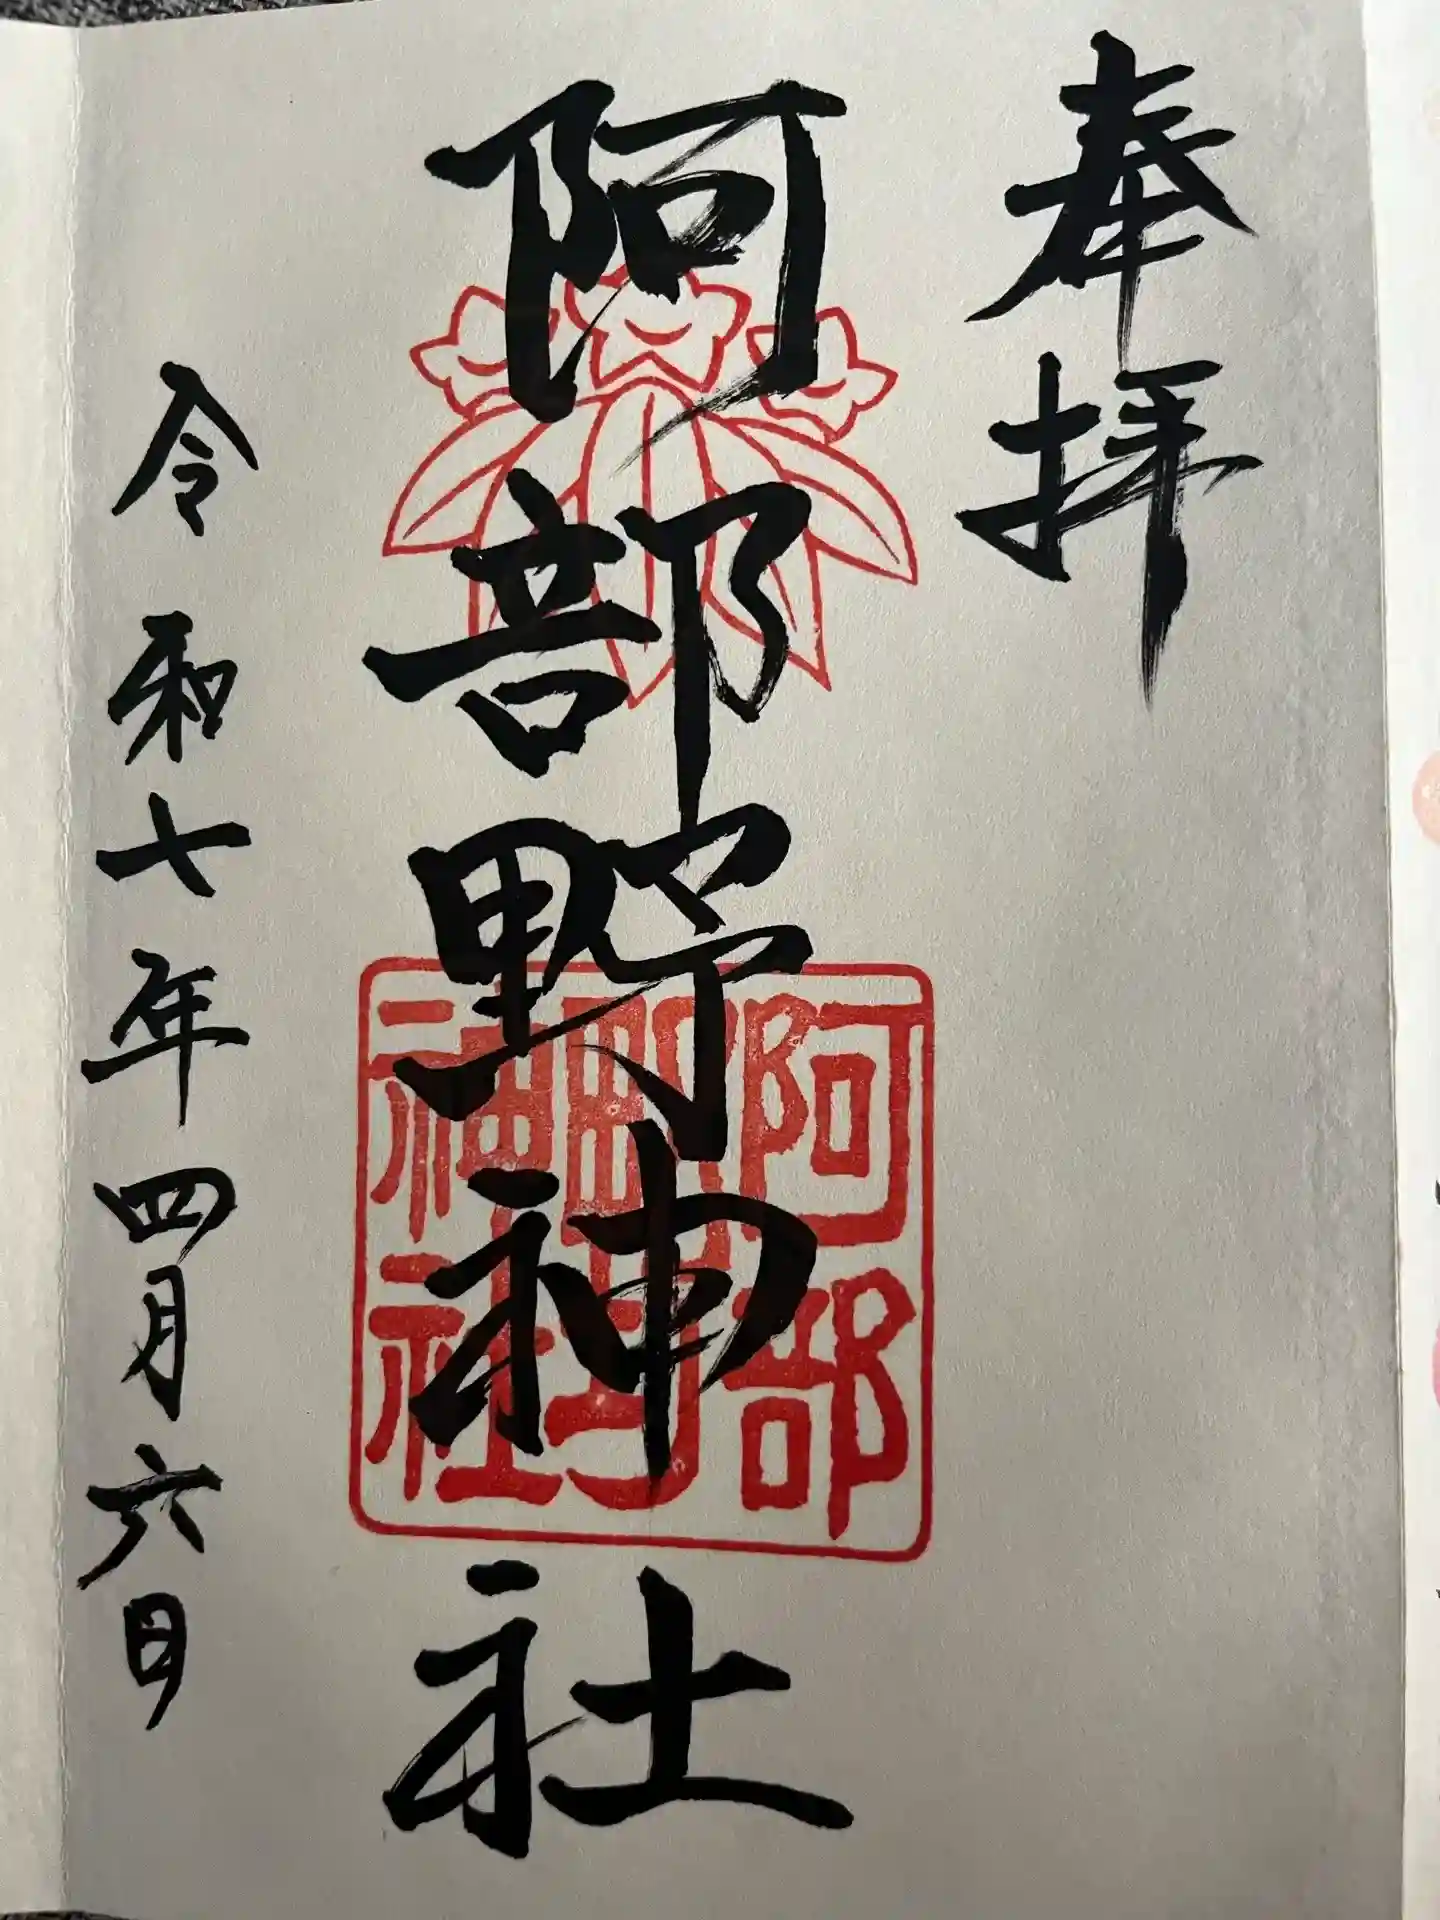 奉拝
阿部野神社
阿部野神社
令和七年四月六日